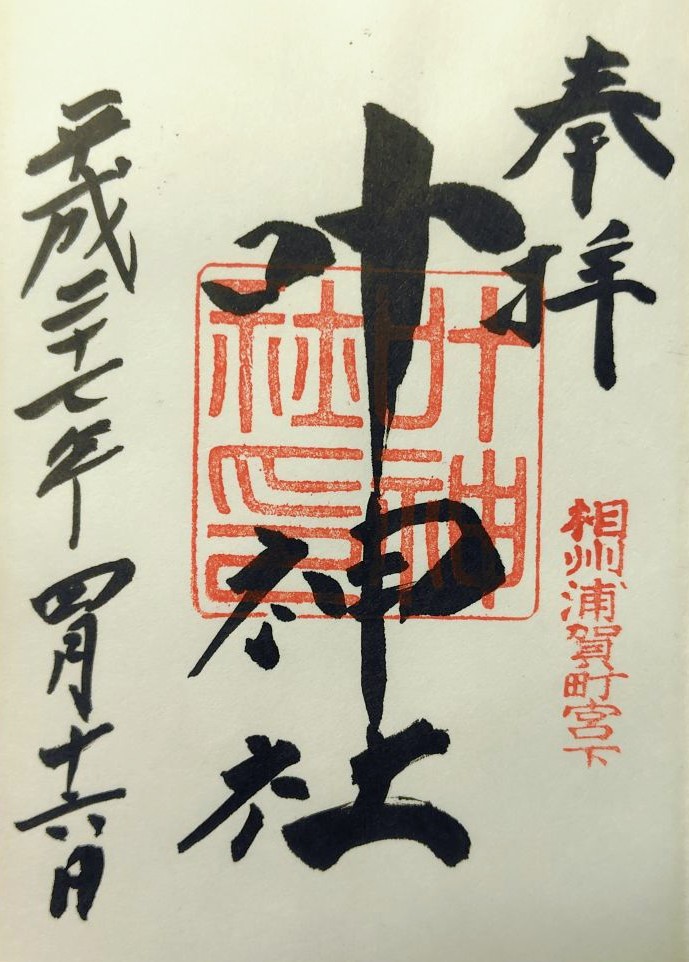 奉拝
相州浦賀町宮下
叶神社
叶神
社印
平成二十七年四月十六日